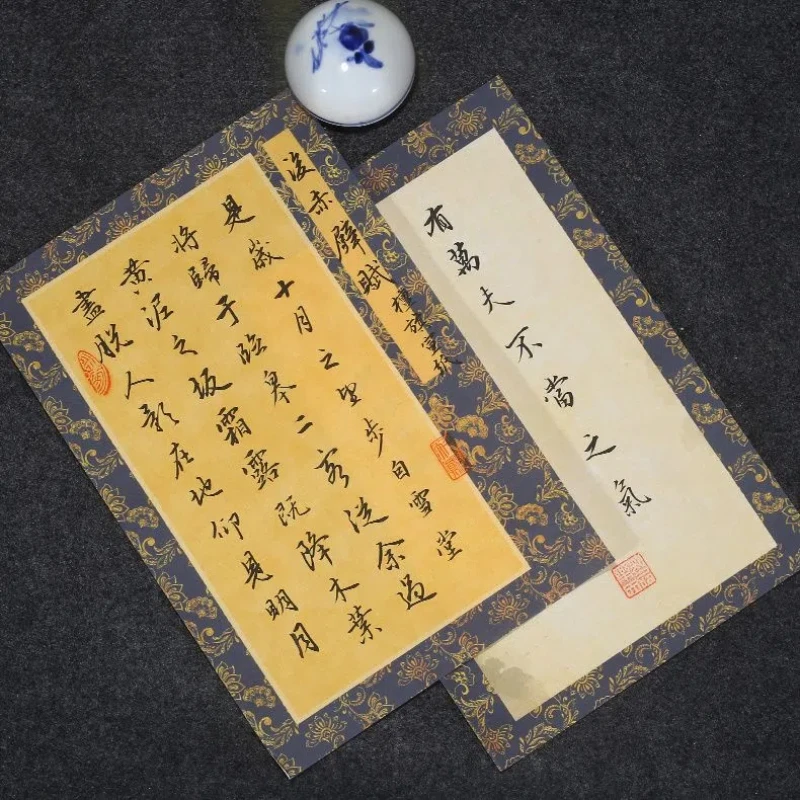 後赤壁賦
是歲十月之望步自雪堂
將歸于臨皋二客從余過
黄泥之坂霜露既降木葉
盡脫人影在地仰見明月
有萬夫不當之氣